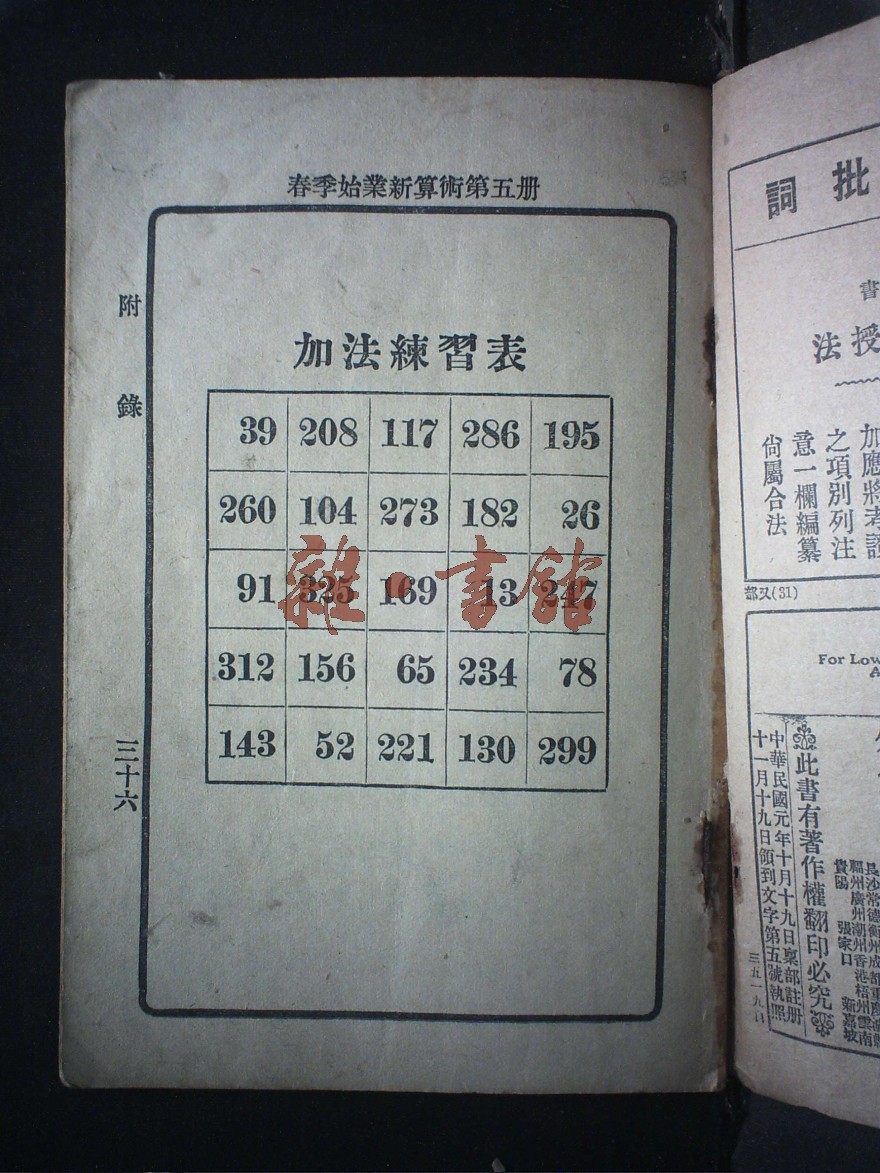 春季始業新算術第五册
附錄
加法練習表
39 208 117 286 195
260 104 273 182 26
91 325 169 13 247
312 156 65 234 78
143 52 221 130 299
三十六
雜·書館
批詞
書
授法
加應將考證
之項別列注
意一欄編纂
尙屬合法
部又(31)
For Low
此書有著作權翻印必究
中華民國元年十月十九日稟部註册
十一月十九日領到文字第五號執照
福州廣州潮州香港梧州雲南
貴陽 張家口 新嘉坡